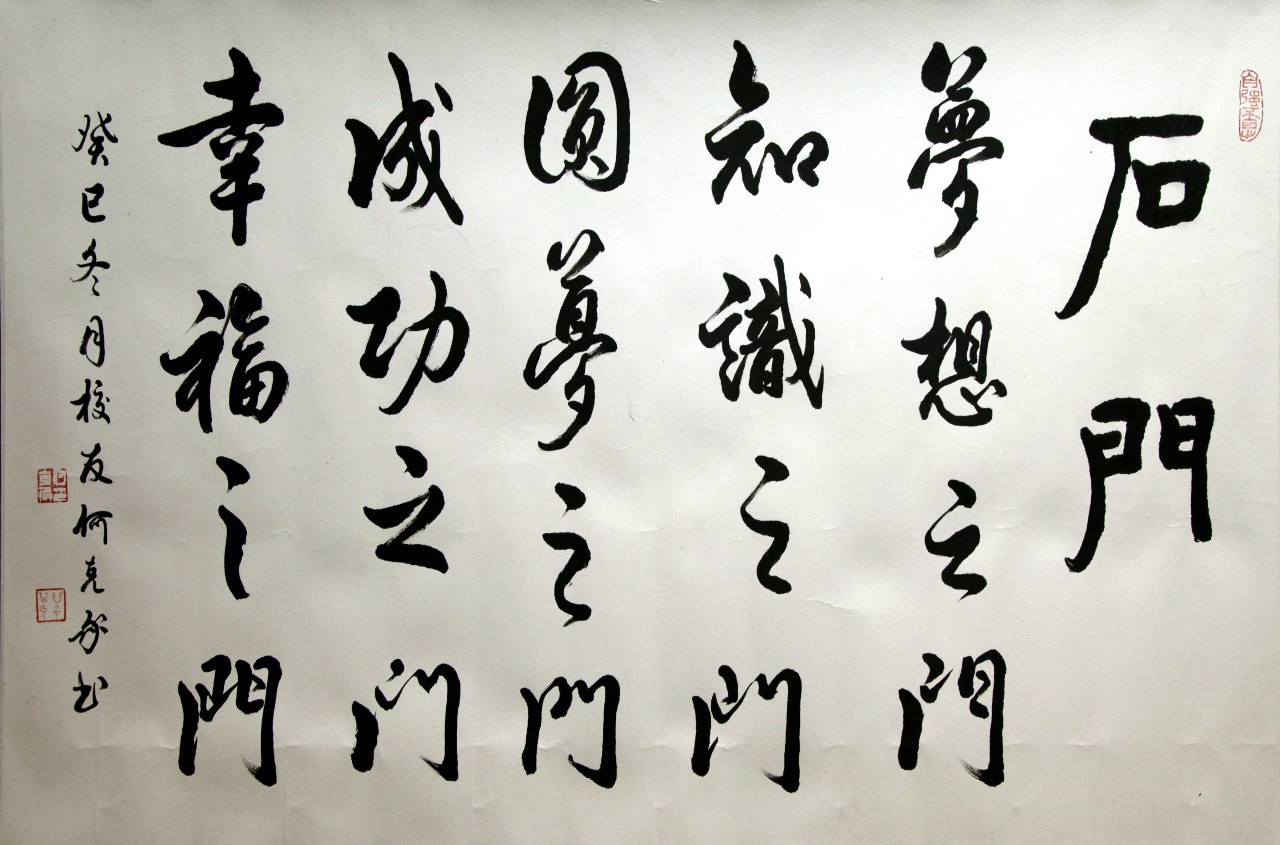 石門
夢想之門
知識之門
圓夢之門
成功之門
幸福之門
癸巳冬月校友何克承书
自強不息